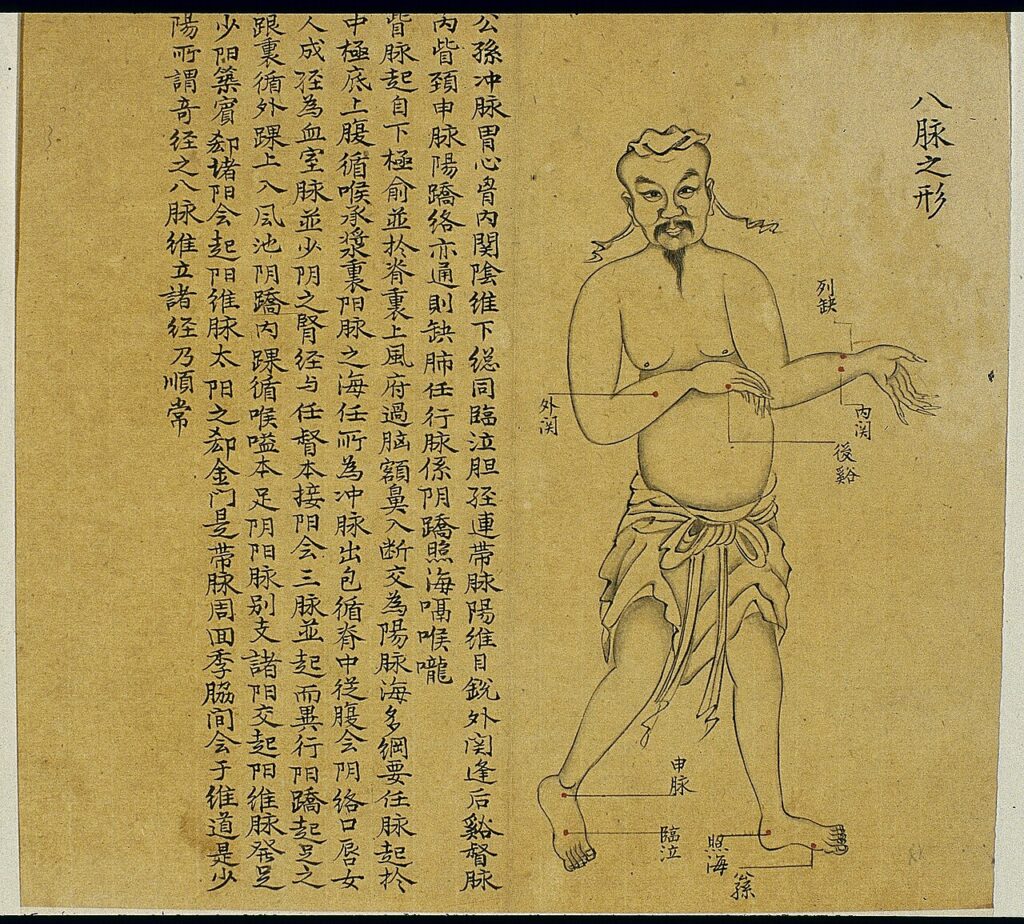 八脉之形
列缺
内関
後谿
外関
申脉
臨泣
照海
公孫冲脉胃心胷内関陰維下總同臨泣胆経連帯脉陽維目銳外関逢后谿督脉
内眥頚申脉陽蹻络亦通則缺肺任行脉係阴蹻照海嗝喉嚨
督脉起自下極俞並扵脊裏上風府過脑額鼻入断交為陽脉海多綱要任脉起扵
中極底上腹循喉承漿裏阳脉之海任所為冲脉出包循脊中從腹会阴络口唇女
人成経為血室脉並少阴之腎経与任督本接阳会三脉並起而異行阳蹻起足之
跟裏循外踝上入風池阴蹻内踝循喉嗌本足阴阳脉别支諸阳交起阳維脉發足
少阳築賓郄堵阳会起阳維脉太阳之郄金门是帯脉周囬季脇间会于維道是少
陽所謂奇经之八脉維立諸经乃順常